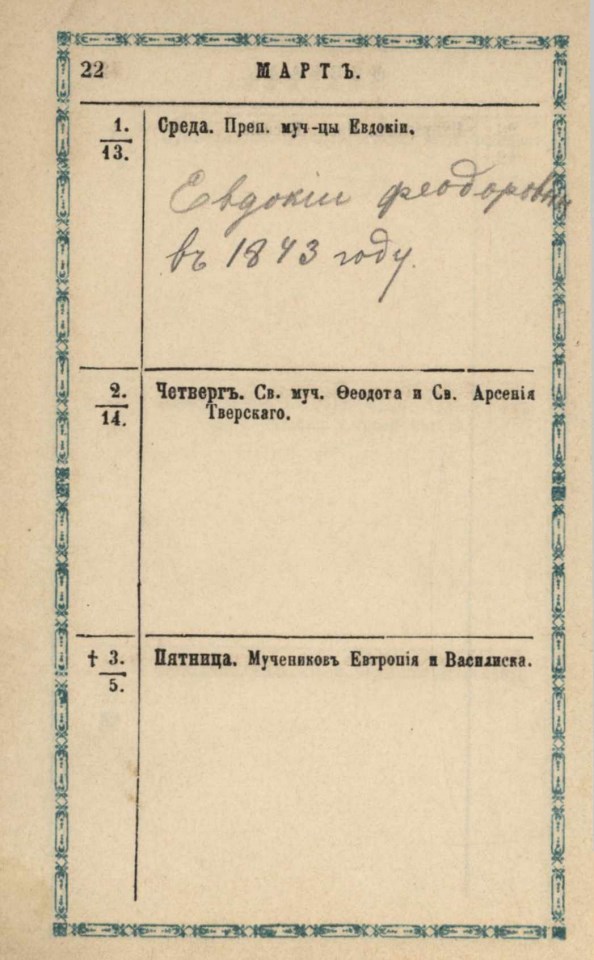 22 МАРТЪ.
1. Среда. Преп. муч-цы Евдокіи.
13.
Евдокіи Феодоровны
въ 1843 году.
2. Четвергъ. Св. муч. Ѳеодота и Св. Арсенія
14. Тверскаго.
† 3. Пятница. Мучениковъ Евтропія и Василиска.
5.